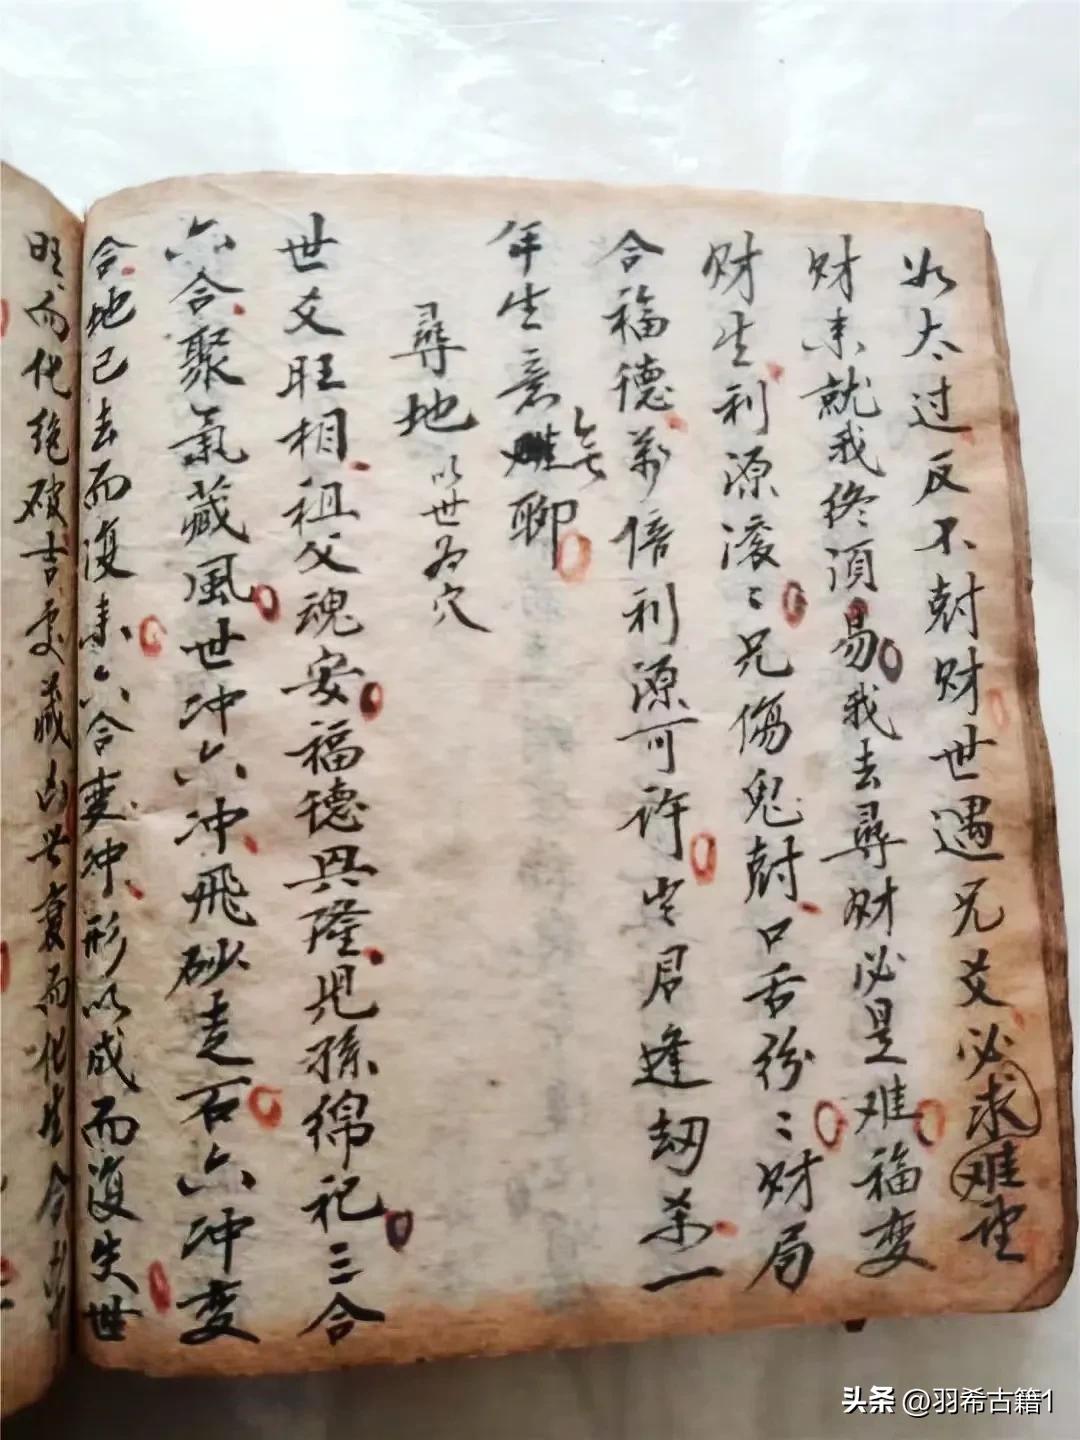 如太过反不尅财世遇兄爻必求难望
财来就我终须易我去尋财必是难福变
财生利源滚〻兄傷鬼尅口舌纷〻财局
合福德萬倍利源可许官居逢劫杀一
年生意無聊
尋地 以世为穴
世爻旺相祖父魂安福德興隆児孫綿祀三合
六合聚氣藏風世冲六冲飛砂走石六冲变
合地已去而復来六合变冲形以成而復失世
旺而化绝破吉处藏凶世衰而化生合凶
头条 @羽希古籍1